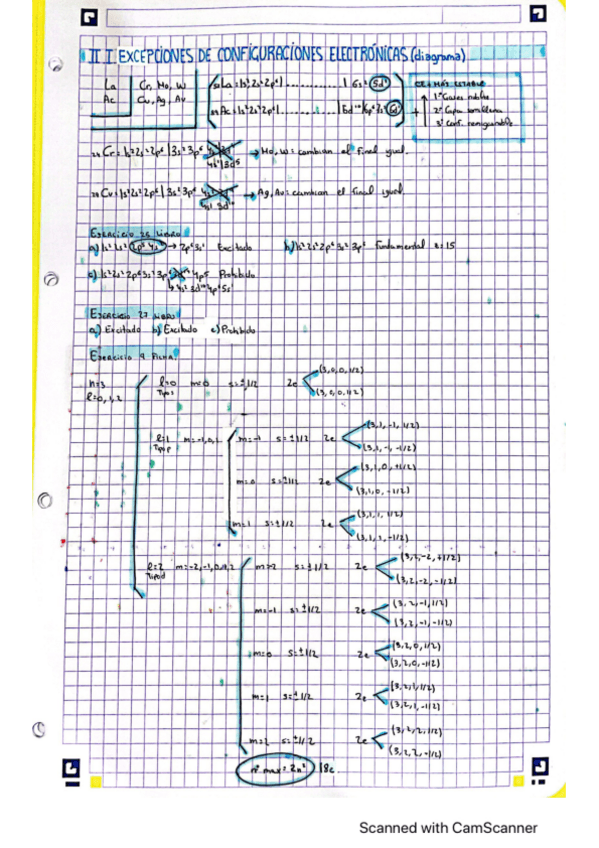 II.I EXCEPCIONES DE CONFIGURACIONES ELECTRÓNICAS (diagrama)
La Cr, Mo, W
Ac Cu, Ag, Au
57La = 1s² 2s² 2p⁶ | ............ | 6s² 5d¹
89Ac = 1s² 2s² 2p⁶ | ............
MÁS ESTABLE
1º Gases nobles
2º Capa semillena
24Cr = 1s² 2s² 2p⁶ | 3s² 3p⁶ 4s¹ 3d⁵ → Mo, W = cambian el final igual.
29Cu = 1s² 2s² 2p⁶ | 3s² 3p⁶ 4s¹ 3d¹⁰ → Ag, Au = cambian el final igual
EJERCICIO 26 LIBRO
a) 1s² 2s² 2p⁵ → 2p⁶ 3s¹ Excitado b) 1s² 2s² 2p⁶ 3s² 3p³ Fundamental z=15
c) 1s² 2s² 2p⁶ 3s² 3p⁶ 4p5 Prohibido
↳ 4s² 3d¹⁰ 4p⁶ 5s¹
EJERCICIO 27 LIBRO
a) Excitado b) Excitado c) Prohibido
EJERCICIO 9 FICHA
n=3 l=0 m=0 s=±1/2 2e (3,0,0,1/2)
l=0,1,2 Tipo s (3,0,0,1/2)
l=1 m=-1,0,1 m=-1 s=±1/2 2e (3,1,-1,1/2)
Tipo p (3,1,-1,-1/2)
m=0 s=±1/2 2e (3,1,0,+1/2)
(3,1,0,-1/2)
m=1 s=±1/2 2e (3,1,1,1/2)
(3,1,1,-1/2)
l=2 m=-2,-1,0,1,2 m=-2 s=±1/2 2e (3,2,-2,+1/2)
Tipo d (3,2,-2,-1/2)
m=-1 s=±1/2 2e (3,2,-1,1/2)
(3,2,-1,-1/2)
m=0 s=±1/2 2e (3,2,0,1/2)
(3,2,0,-1/2)
m=1 s=±1/2 2e (3,2,1,1/2)
(3,2,1,-1/2)
m=2 s=±1/2 2e (3,2,2,1/2)
(3,2,2,-1/2)
nº max = 2n² 18e⁻
Scanned with CamScanner